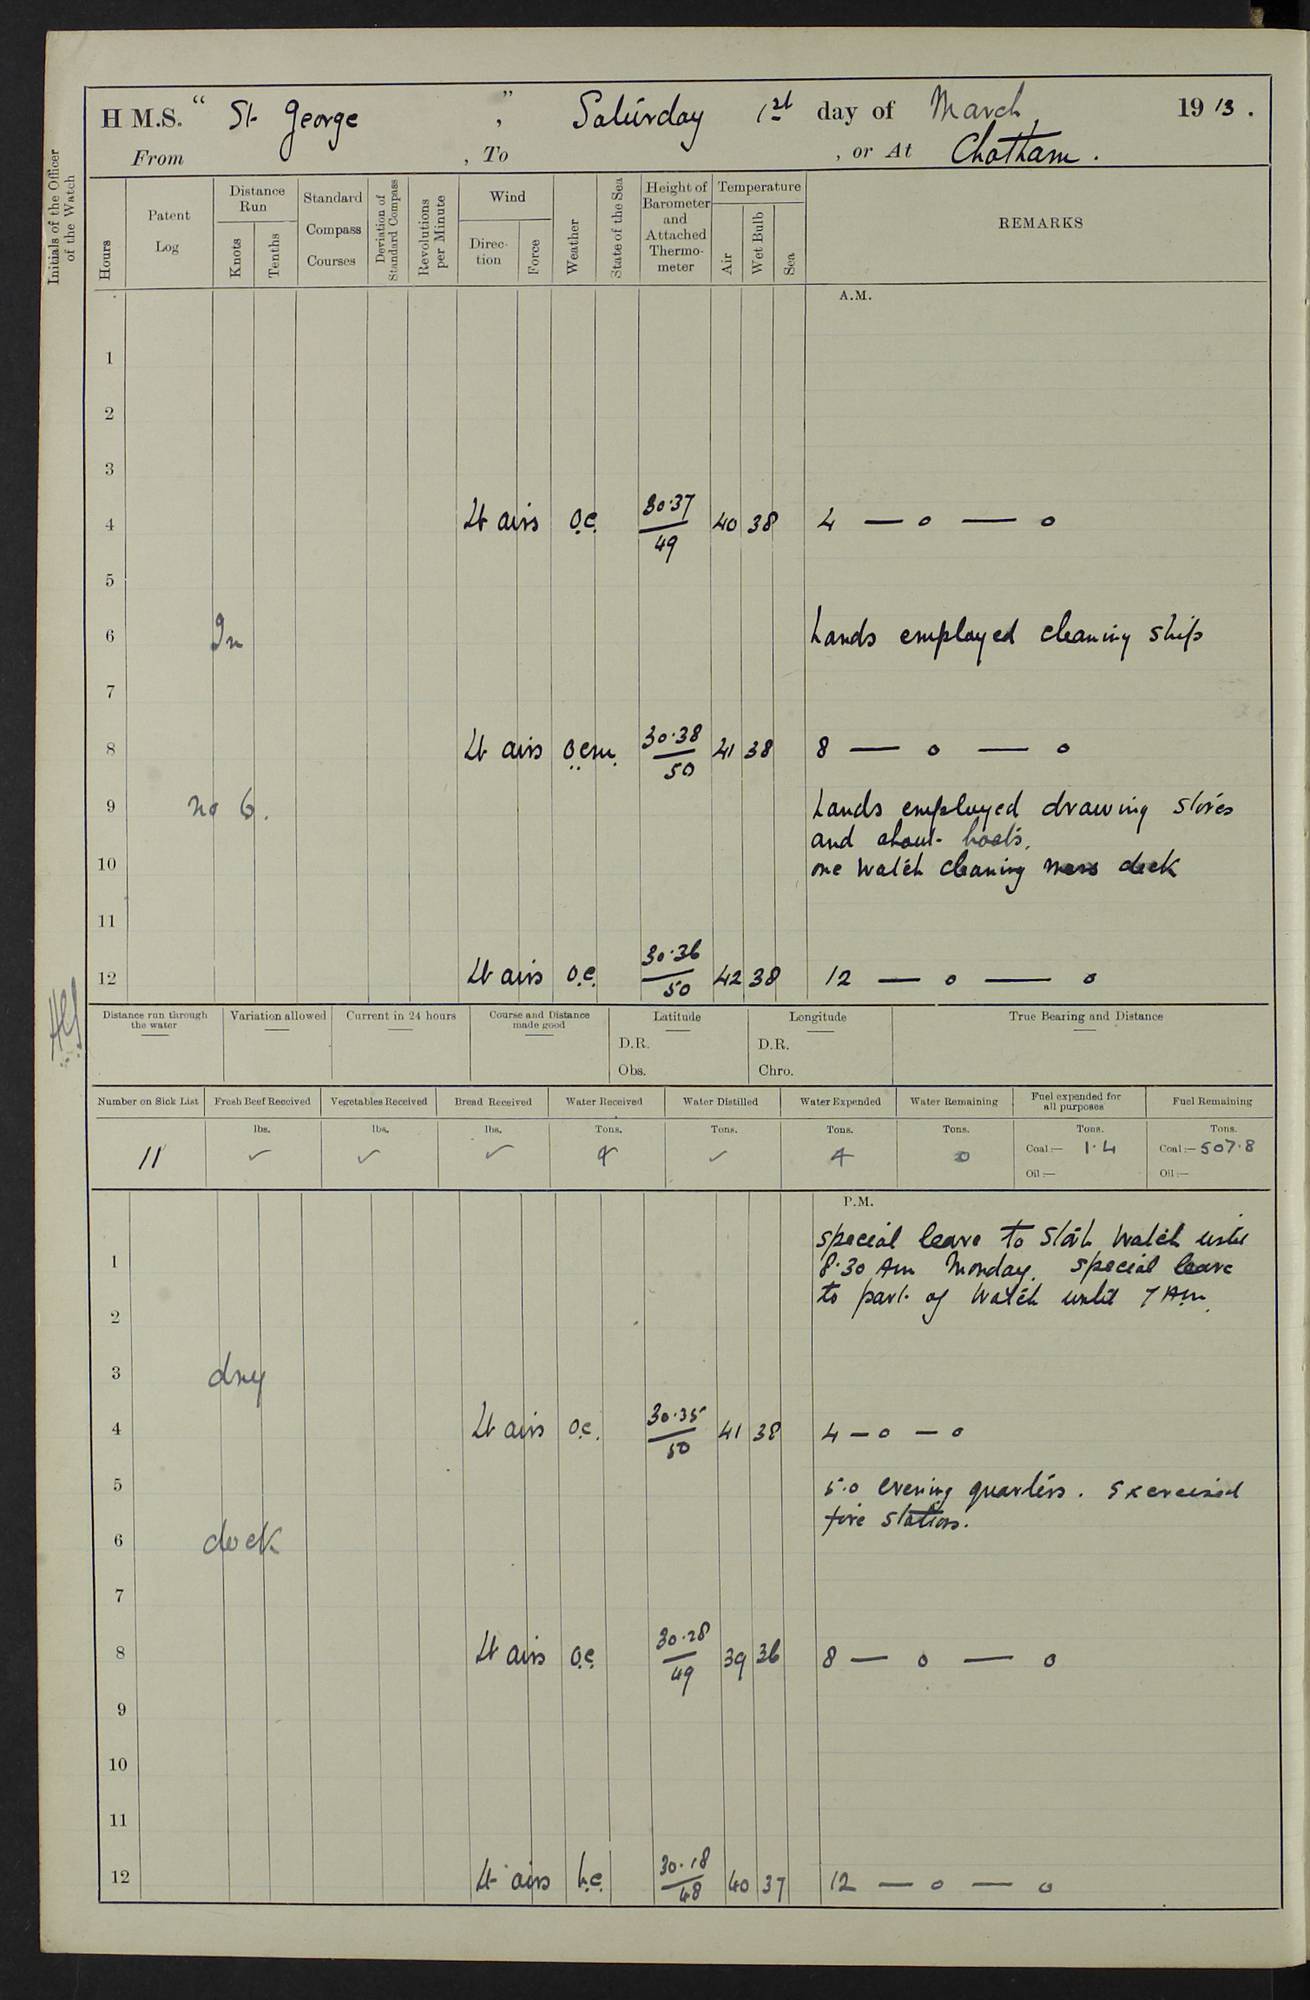 H M.S. "St George", Saturday 1st day of March, 1913.
From , To , or At Chatham.
Initials of the Officer of the Watch
Hours
Patent Log
Distance Run
Knots
Tenths
Standard Compass Courses
Deviation of Standard Compass
Revolutions per Minute
Wind
Direction
Force
Weather
State of the Sea
Height of Barometer and Attached Thermometer
Temperature
Air
Wet Bulb
Sea
REMARKS
A.M.
1
2
3
4 Lt airs o.c. 30.37/49 40 38 4 — o — o
5
6 In Hands employed cleaning ship
7
8 Lt airs o.c.m. 30.38/50 41 38 8 — o — o
9 no 6. Hands employed drawing stores
and about boats.
10 one watch cleaning mess deck
11
12 Lt airs o.c. 30.36/50 42 38 12 — o — o
Distance run through the water
Variation allowed
Current in 24 hours
Course and Distance made good
Latitude
D.R.
Obs.
Longitude
D.R.
Chro.
True Bearing and Distance
Number on Sick List
Fresh Beef Received
Vegetables Received
Bread Received
Water Received
Water Distilled
Water Expended
Water Remaining
Fuel expended for all purposes
Fuel Remaining
lbs. lbs. lbs. Tons. Tons. Tons. Tons. Tons. Tons.
11 ✓ ✓ ✓ 4 ✓ 4 0 Coal:— 1.4 Coal:— 507.8
Oil:— Oil:—
P.M.
special leave to Starb watch until
1 8.30 Am Monday. special leave
to part of watch until 7 Am.
2
3 dry
4 Lt airs o.c. 30.35/50 41 38 4 — o — o
5 5.0 evening quarters. Exercised
fire stations.
6 dock
7
8 Lt airs o.c. 30.28/49 39 36 8 — o — o
9
10
11
12 Lt airs b.c. 30.18/48 40 37 12 — o — o